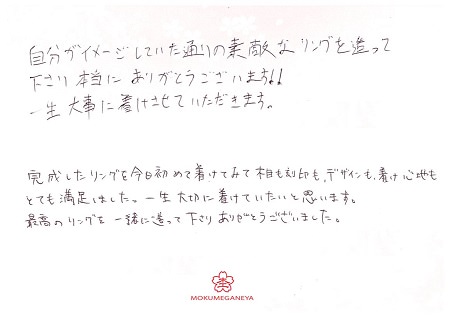 自分がイメージしていた通りの素敵なリングを造って
下さり本当にありがとうございます!!
一生大事に着けさせていただきます。
完成したリングを今日初めて着けてみて木目も刻印も、デザインも、着け心地も
とても満足しました。一生大切に着けていたいと思います。
最高のリングを一緒に造って下さりありがとうございました。
MOKUMEGANEYA